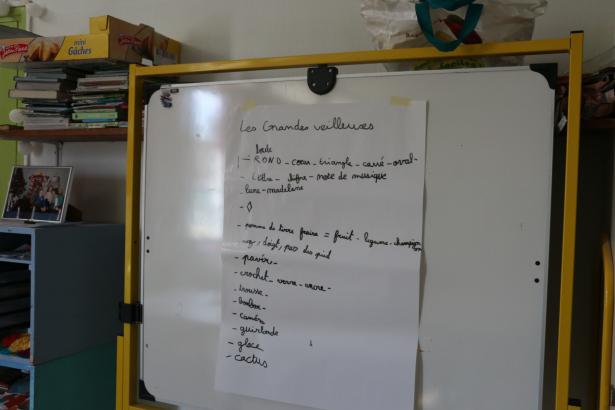 mini
Gâches
Les Grandes veilleuses
boule
- ROND - coeur - triangle - carré - oval -
- Lettre - chiffre - note de musique
- lune - madeleine
-
- pomme de terre fraise = fruit - légume - champignon
doigt, pas des pied
- panier -
- crochet - verre - ancre -
- trousse -
- bonbon -
- caméra
- guirlande
- glace
- cactus